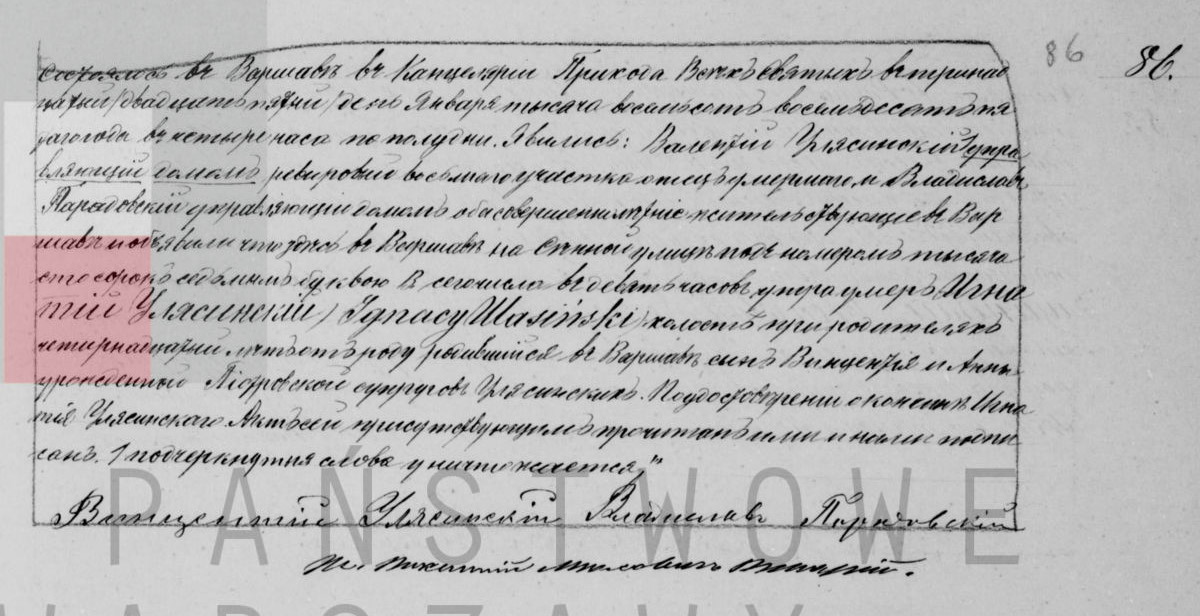 86 86.
Состоялось въ Варшавѣ въ Канцеляріи Прихода Всѣхъ Святыхъ въ тринад
цатый /двадцать пятый/ день Января тысяча восемьсотъ восемьдесятъ пя
таго года въ четыре часа по полудни. Явились: Валентій Улясинскій /упра
вляющій домомъ/ ревировый восьмаго участка отецъ умершаго и Владиславъ
управляющій домомъ оба совершеннолѣтніе жительствующіе въ Вар
шавѣ и объявили что здѣсь въ Варшавѣ на Сѣнной улицѣ подъ номеромъ тысяча
сто сорокъ седьмымъ буквою В сего числа въ девять часовъ утра умеръ Игна
тій Улясинскій /Ignacy Ulasiński/ холостъ при родителяхъ
четырнадцатый лѣтъ отъ роду родившійся въ Варшавѣ сынъ Винцентія и Анны
урожденной Піотровской супруговъ Улясинскихъ. По удостовѣреніи о кончинѣ Игна
тія Улясинскаго Актъ сей присутствующимъ прочитанъ ими и нами подпи
санъ. / подчеркнутыя слова уничтожается "
Винцентій Улясинскій Владиславъ
PAŃSTWOWE
WARSZAWY